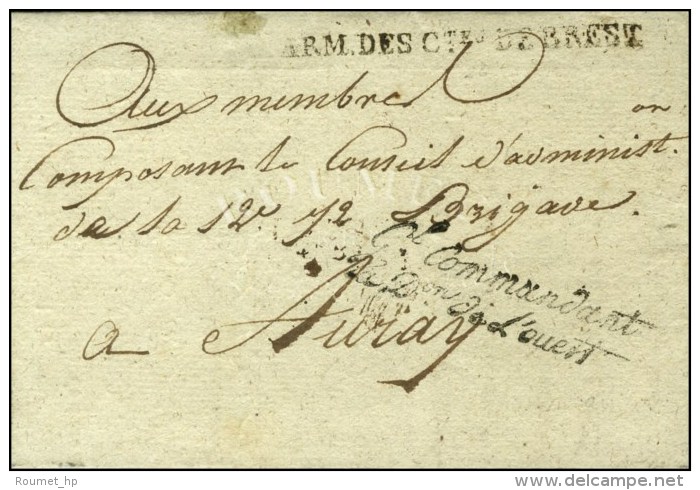 ARM. DES CTES DE BREST
Aux membres
Composant le Conseil d'administ.on
de la 12e 1/2 Brigade.
Gal Commandant
Don de L'ouest
a Auray
Roumet_hp
delcampe.net